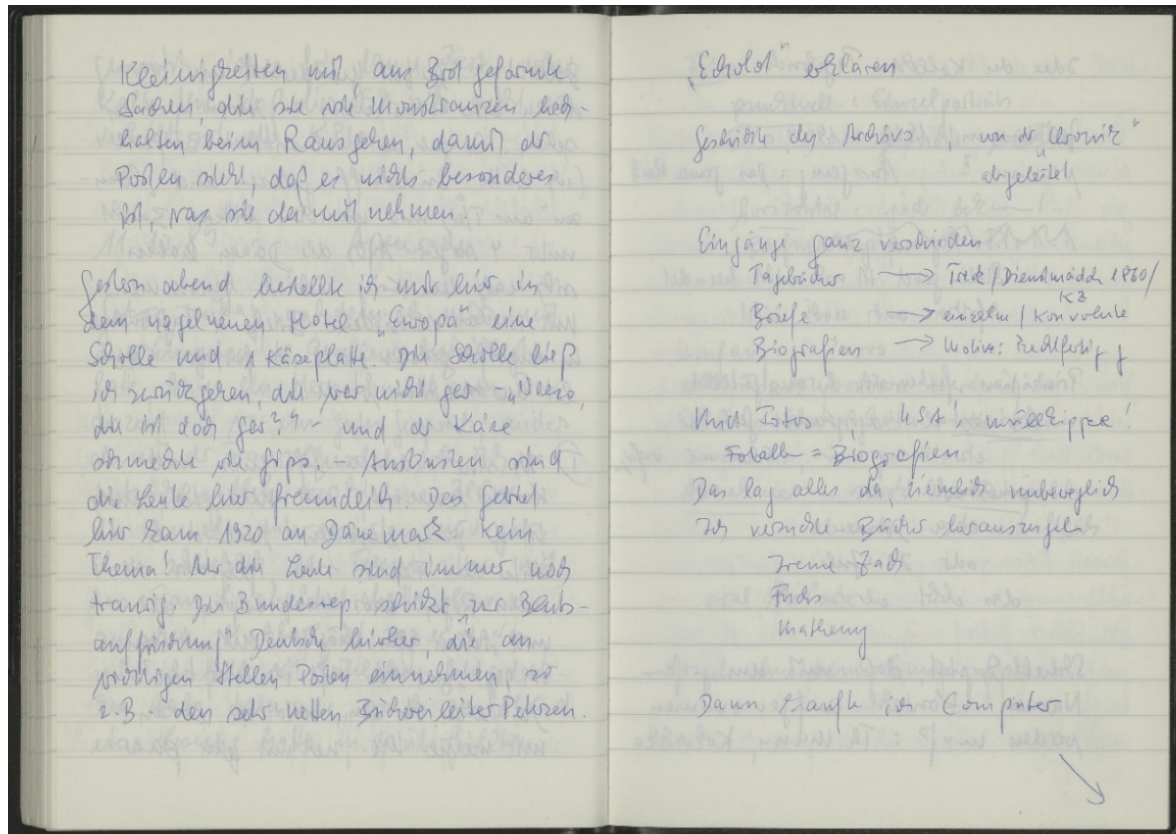 Kleinigkeiten mit, aus Brot geformte
Sachen, die sie wie Monstranzen hoch-
halten beim Rausgehen, damit der
Posten sieht daß es nichts besonderes
ist, was sie da mit nehmen.
Gestern abend bestellte ich mir hier in
dem nagelneuen Hotel „Europa" eine
Scholle und 1 Käseplatte. Die Scholle ließ
ich zurückgehen, die war nicht gar –
die ist doch gar?" – und der Käse
schmeckte wie Gips. – Ansonsten sind
die Leute hier freundlich. Das Gebiet
hier kam 1920 an Dänemark. Kein
Thema! Aber die Leute sind immer noch
traurig. Die Bundesrep schickt „zur Blut-
auffrischung" Deutsche hierher, die an
wichtigen Stellen Posten einnehmen, so
z.B. den sehr netten Büchereileiter Petersen.
„Echolot" erklären
Geschichte des Archivs, „von der Chronik"
abgeleitet
Eingänge ganz verschieden
Tagebücher → Treck / Dienstmädch 1860 /
KZ
Briefe → einzeln / Konvolute
Biografien → Motive: Rechtfertig
Auch Fotos, USA! Müllkippe!
Fotoalb = Biografien
Das lag alles da, ziemlich unbeweglich
Ich versuchte Bücher herauszugeben
Irene Zach
Fuchs
Matheny
Dann kaufte ich Computer